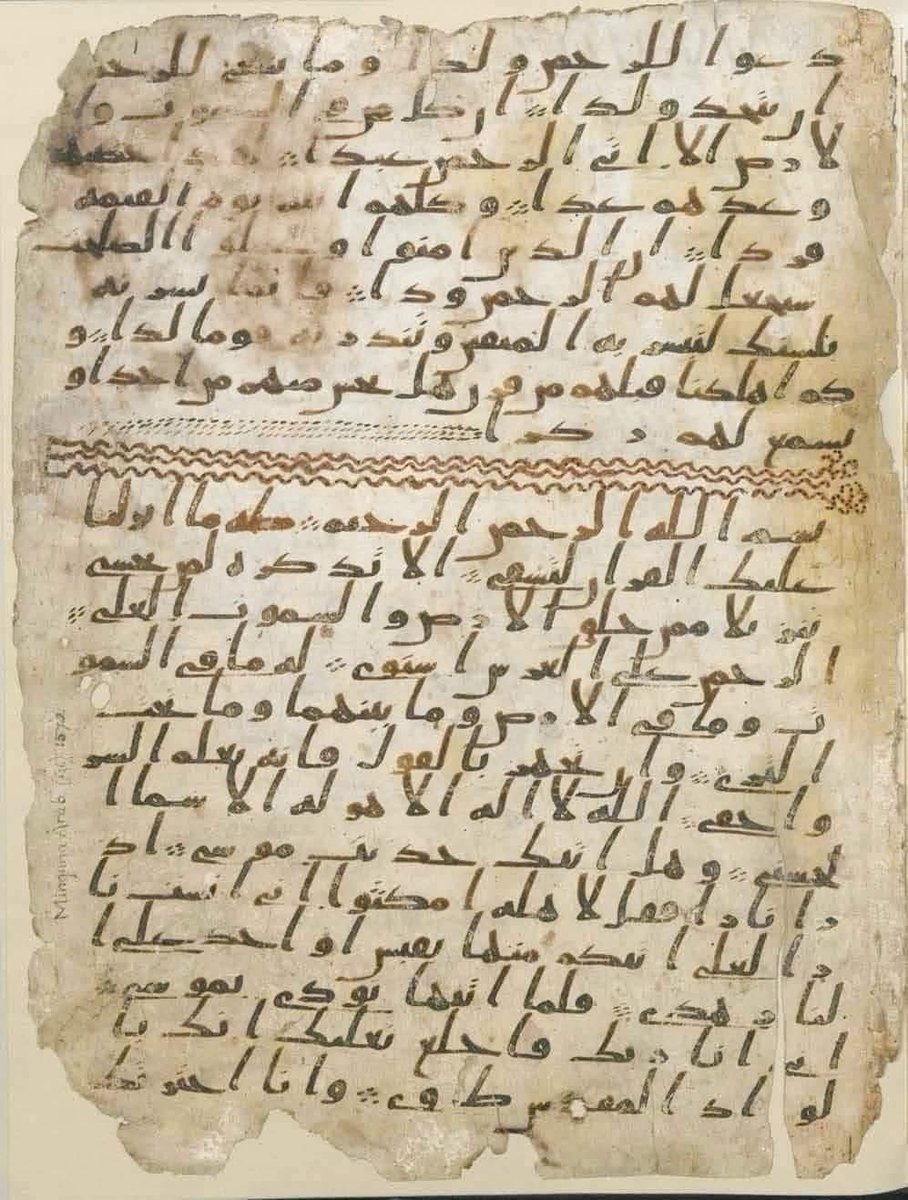 دعوا للرحمن ولدا وما ينبغي للرحمن
ان يتخذ ولدا ان كل من في السموت وا
لارض الا اتي الرحمن عبدا لقد احصيهم
وعدهم عدا وكلهم اتيه يوم القيمه
فردا ان الذين امنوا وعملوا الصلحت
سيجعل لهم الرحمن ودا فانما يسرنه
بلسنك لتبشر به المتقين وتنذر به قوما لدا و
كم اهلكنا قبلهم من قرن هل تحس منهم من احد او
تسمع لهم ركزا
بسم الله الرحمن الرحيم طه ما انزلنا
عليك القران لتشقى الا تذكره لمن يخشى
تنزيلا ممن خلق الارض والسموت العلى
الرحمن على العرش استوى له ما في السمو
ت وما في الارض وما بينهما وما تحت
الثرى وان تجهر بالقول فانه يعلم السر
واخفى الله لا اله الا هو له الاسما ا
لحسنى وهل اتيك حديث موسى اذ
را نارا فقل لاهله امكثوا اني انست نا
را لعلي اتيكم منها بقبس او اجد على ا
لنار هدى فلما اتيها نودي يموسى
اني انا ربك فاخلع نعليك انك با
لواد المقدس طوى وانا اخترتك
Mingana Arab (Isl.) 1572